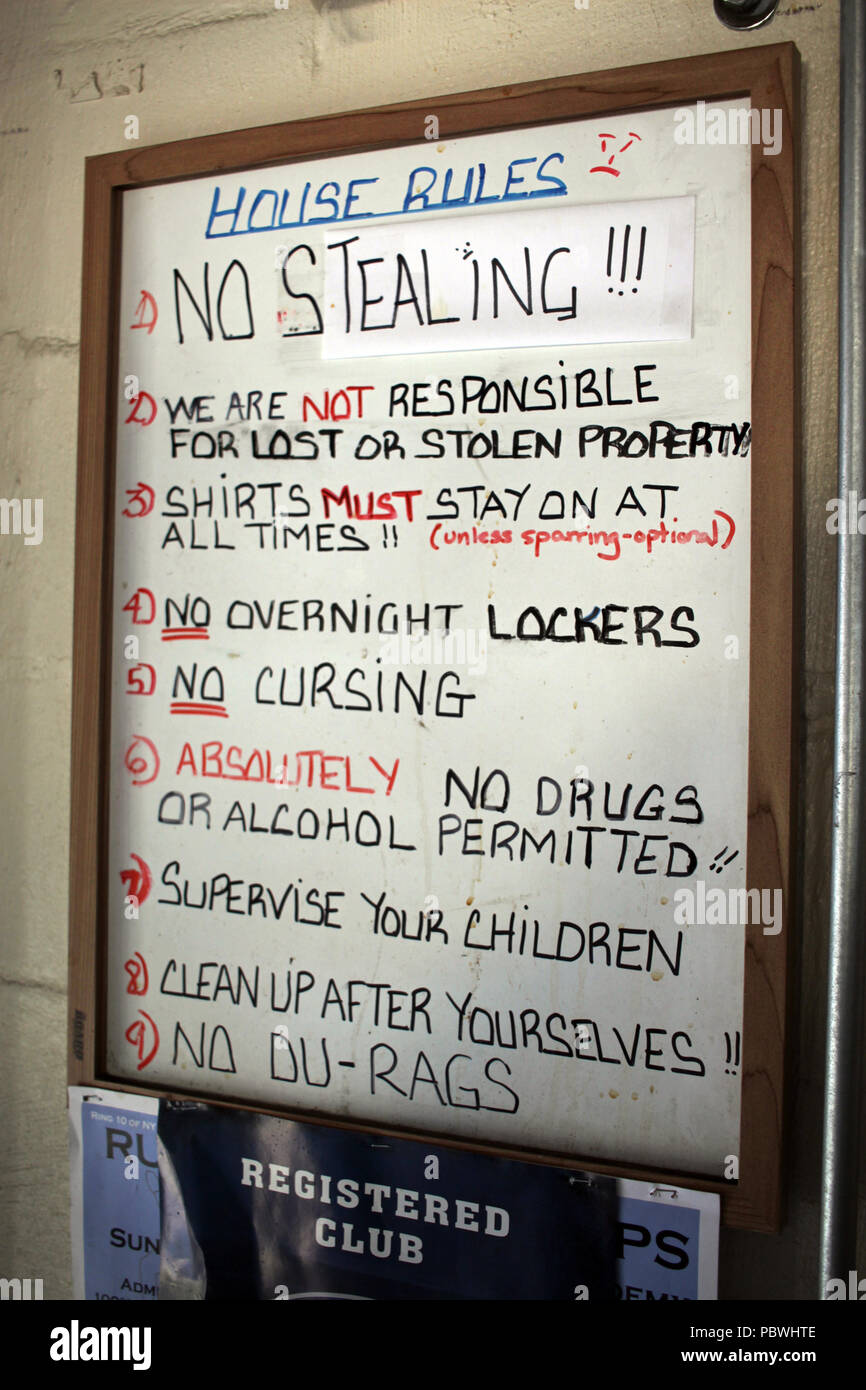 HOUSE RULES
1) NO STEALiNG !!!
2) WE ARE NOT RESPONSiBLE
FOR LOST OR STOLEN PROPERTY
3) SHIRTS MUST STAY ON AT
ALL TiMES !! (unless sparring-optional)
4) NO OVERNiGHT LOCKERS
5) NO CURSING
6) ABSOLUTELY NO DRUGS
OR ALCOHOL PERMITTED !!
7) SUPERVISE YOUR CHiLDREN
8) CLEAN UP AFTER YOURSELVES !!
9) NO DU-RAGS
BOARD
RING 10 OF NY
RU
PS
SUN
ADMI
REGISTERED
CLUB
alamy
Image ID: PBWHTE
www.alamy.com